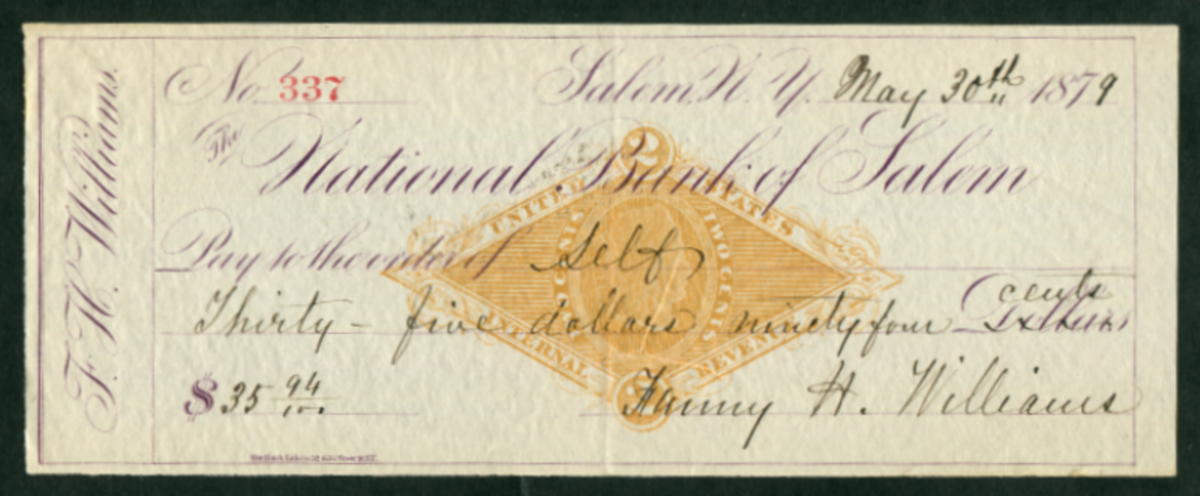 F. H. Williams.
No. 337 Salem, N. Y. May 30th 1879
The National Bank of Salem
2
UNITED STATES
TWO CENTS
TWO CENTS
INTERNAL REVENUE
2
Pay to the order of Self
Thirty - five dollars ninety four cents Dollars
$ 35 94/100.
Fanny H. Williams